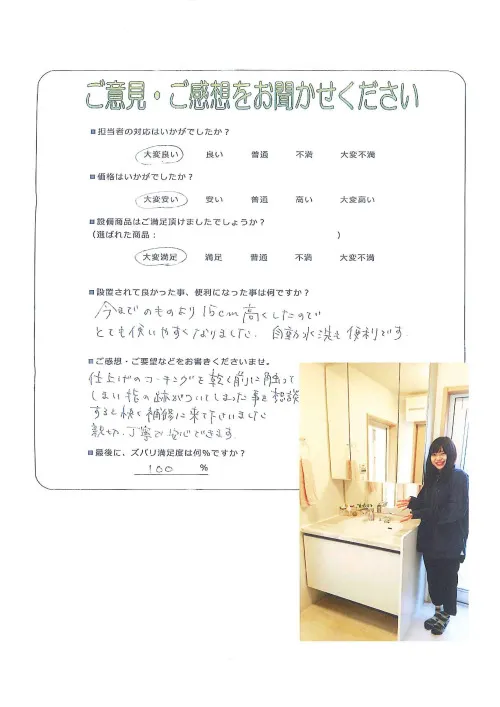 ご意見・ご感想をお聞かせください
■担当者の対応はいかがでしたか？
大変良い 良い 普通 不満 大変不満
■価格はいかがでしたか？
大変安い 安い 普通 高い 大変高い
■設備商品はご満足頂けましたでしょうか？
（選ばれた商品： ）
大変満足 満足 普通 不満 大変不満
■設置されて良かった事、便利になった事は何ですか？
今までのものより15cm高くしたので
とても使いやすくなりました. 自動水洗も便利です.
■ご感想・ご要望などをお書きくださいませ。
仕上げのコーキングを乾く前に触って
しまい指の跡がついてしまった事を相談
すると快く補修に来て下さいました
親切、丁寧で安心できます.
■最後に、ズバリ満足度は何％ですか？
100 %